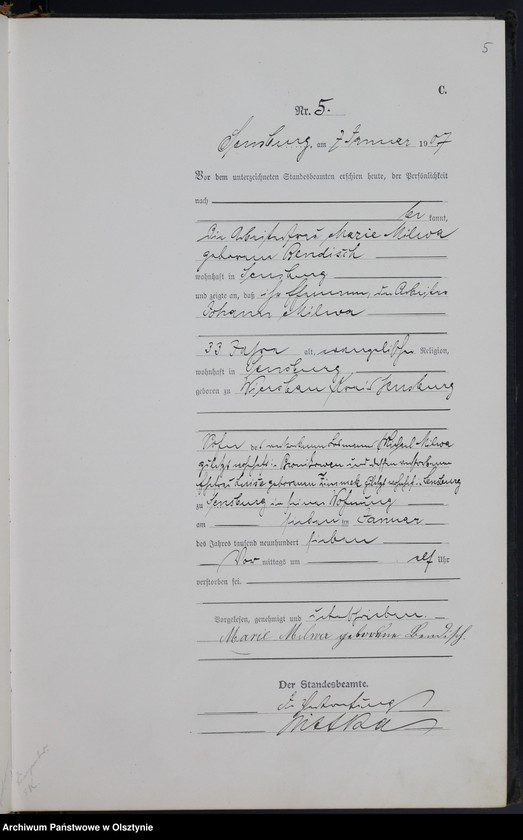 5
C.
Nr. 5.
Sensburg, am 7 Januar 1907
Vor dem unterzeichneten Standesbeamten erschien heute, der Persönlichkeit
nach
be kannt,
die Arbeiterfrau Marie Milwa
geborene Bendisch
wohnhaft in Sensburg
und zeigte an, daß ihr Ehemann, der Arbeiter
Johann Milwa
33 Jahre alt, evangelischer Religion,
wohnhaft in Sensburg
geboren zu Kreis Sensburg
Sohn des verstorbenen Michael Milwa
zuletzt wohnhaft in und dessen verstorbenen
Ehefrau Luise geborenen zuletzt wohnhaft in Sensburg
zu Sensburg in seiner Wohnung
am sieben ten Januar
des Jahres tausend neunhundert sieben
Vor mittags um elf Uhr
verstorben sei.
Vorgelesen, genehmigt und unterschrieben.
Marie Milwa geborene Bendisch.
Der Standesbeamte.
In Vertretung
Archiwum Państwowe w Olsztynie